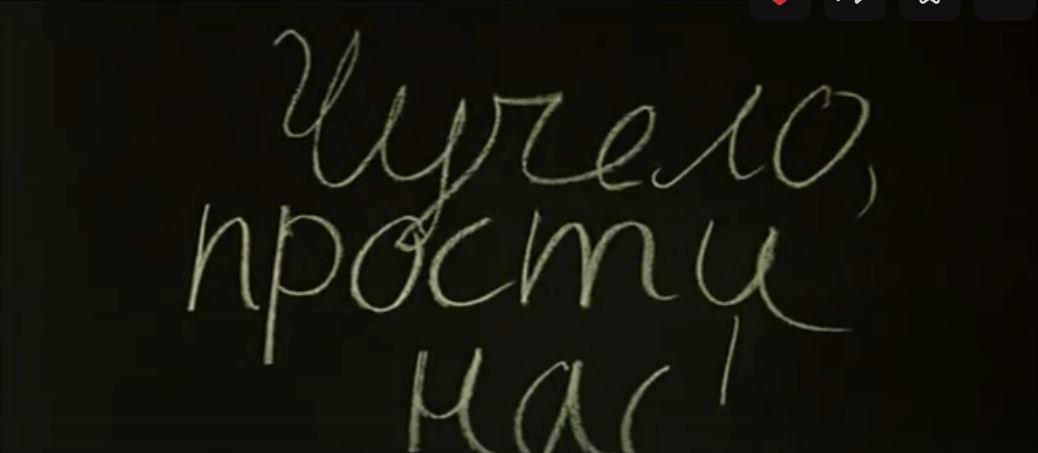 Чучело,
прости
нас!